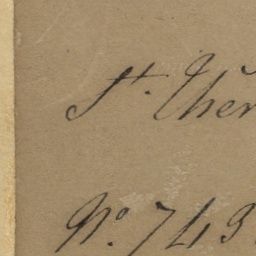 St. Ther
No. 743